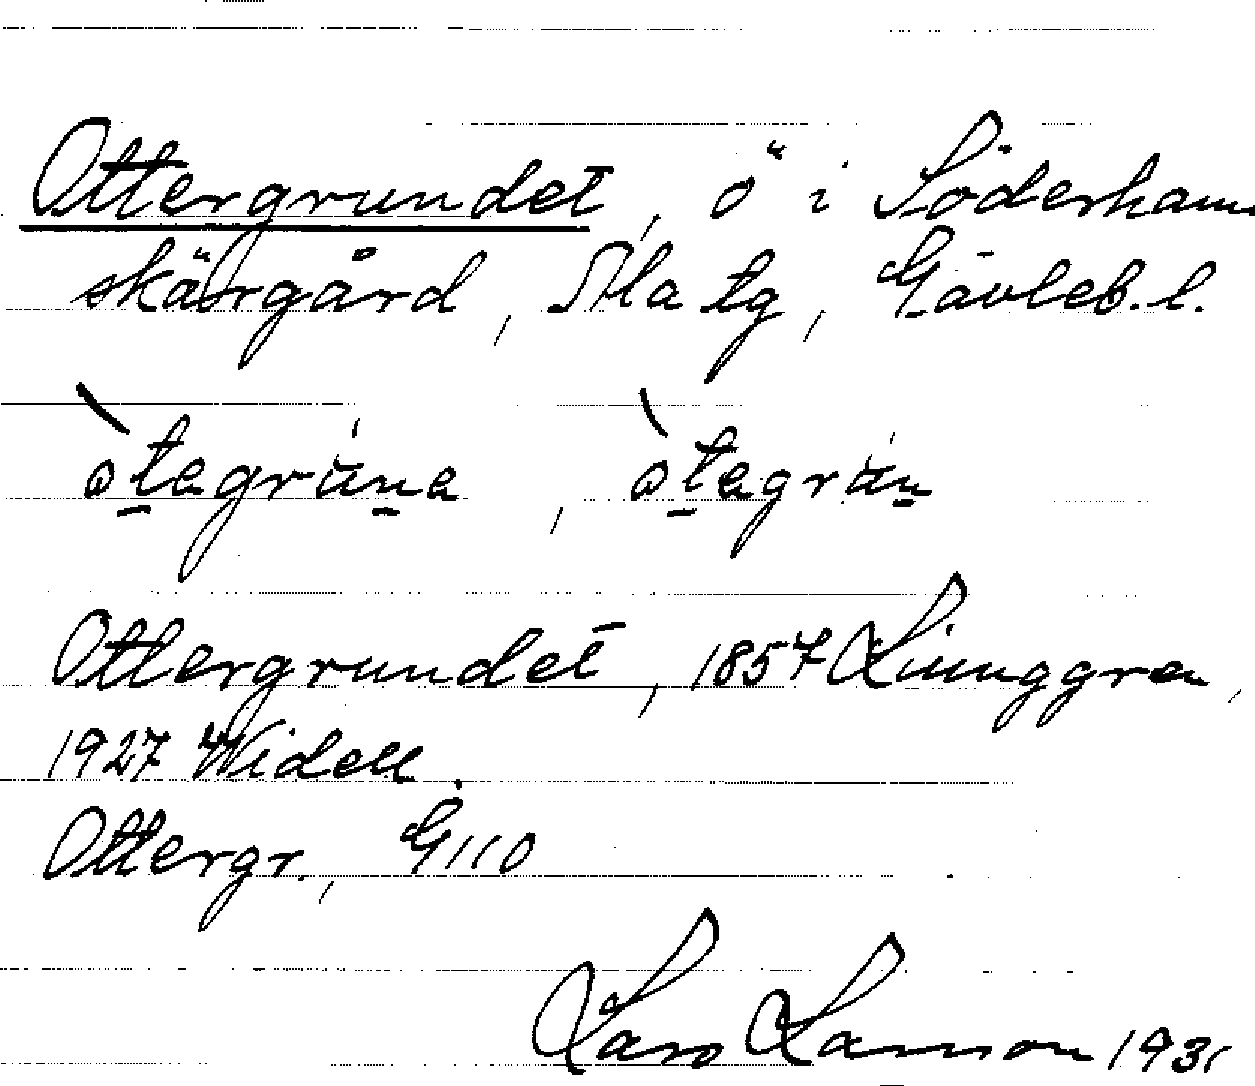 Ottergrundet, ö i Söderhamns
skärgård, Ala tg, Gävleb. l.
òtegrùna, òtegrùn
Ottergrundet, 1857 Ljunggren,
1927 Widell.
Ottergr., G110
Lars Larsson 1931